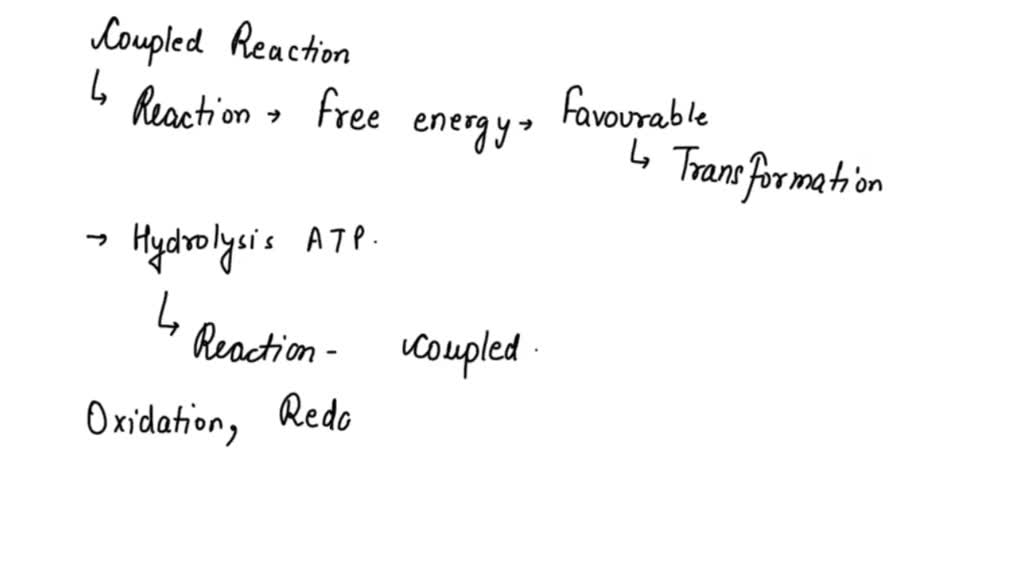 Coupled Reaction
↳ Reaction → free energy → favourable
↳ Transformation
→ Hydrolysis ATP.
↳ Reaction - coupled.
Oxidation, Redo